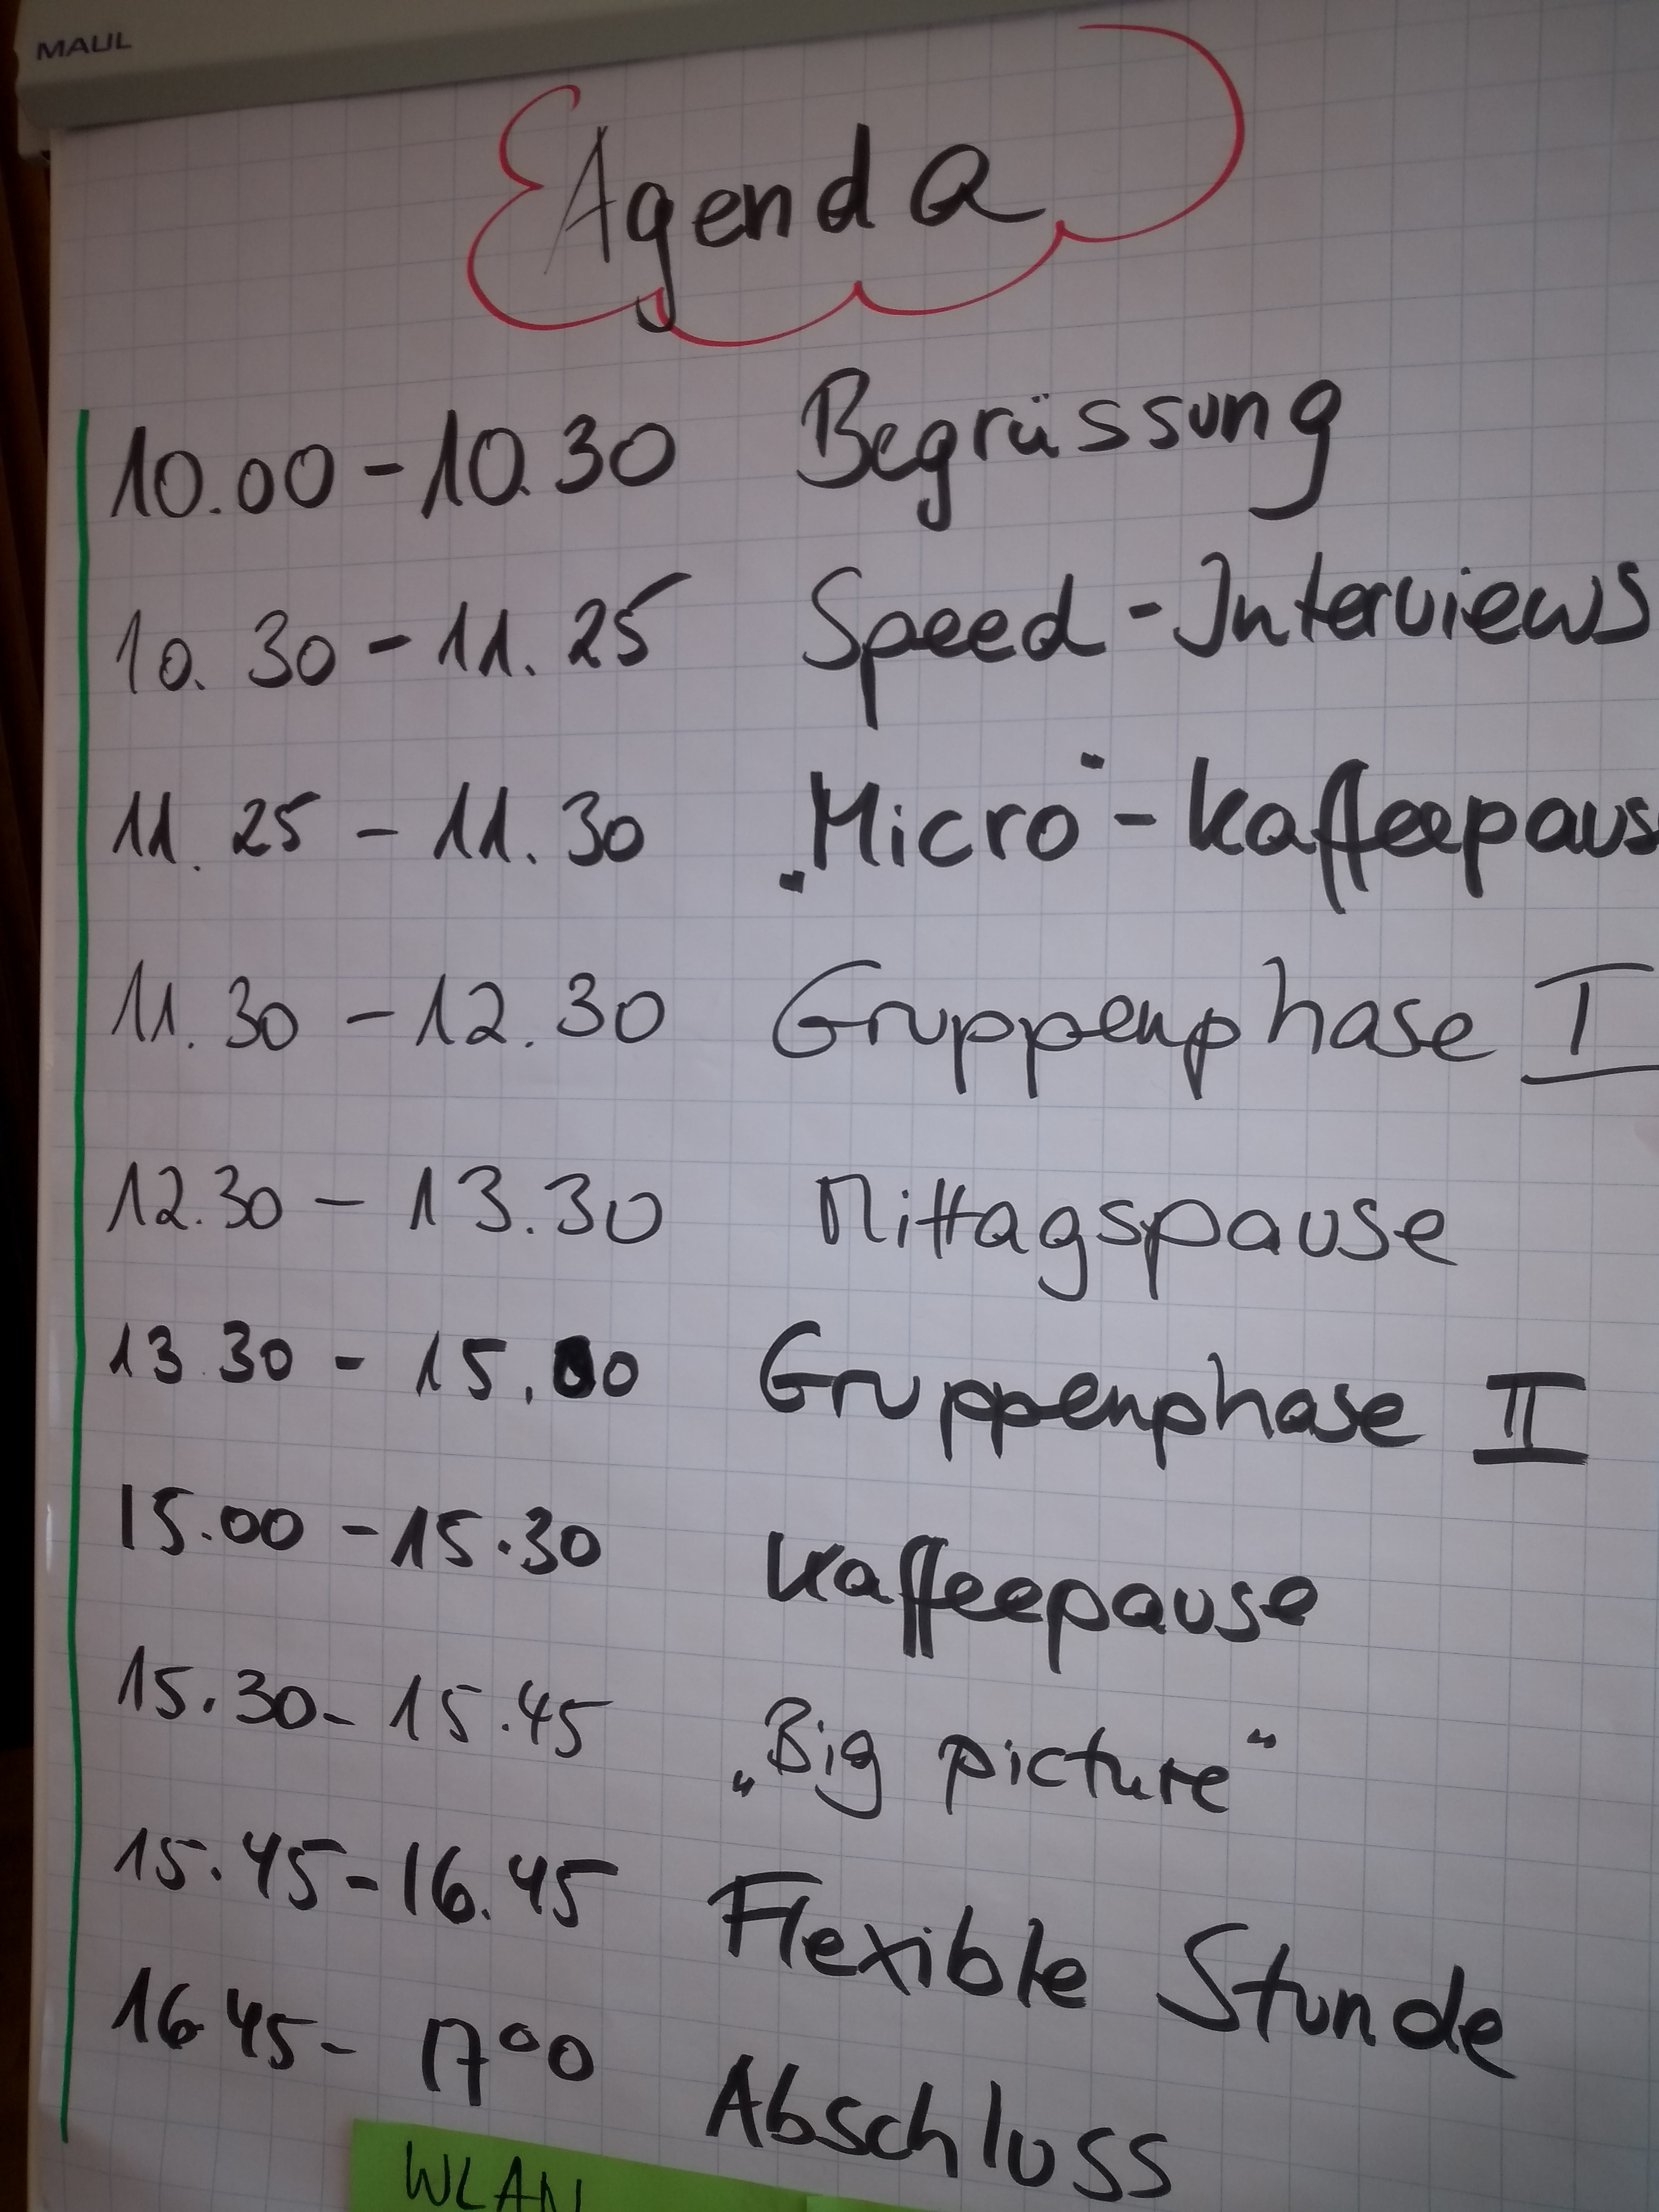 MAUL
Agenda
10.00 - 10.30 Begrüssung
10.30 - 11.25 Speed - Interviews
11.25 - 11.30 "Micro" - Kaffeepaus
11.30 - 12.30 Gruppenphase I
12.30 - 13.30 Mittagspause
13.30 - 15.00 Gruppenphase II
15.00 - 15.30 Kaffeepause
15.30 - 15.45 „Big picture“
15.45 - 16.45 Flexible Stunde
16.45 - 17⁰⁰ Abschluss
WLAN